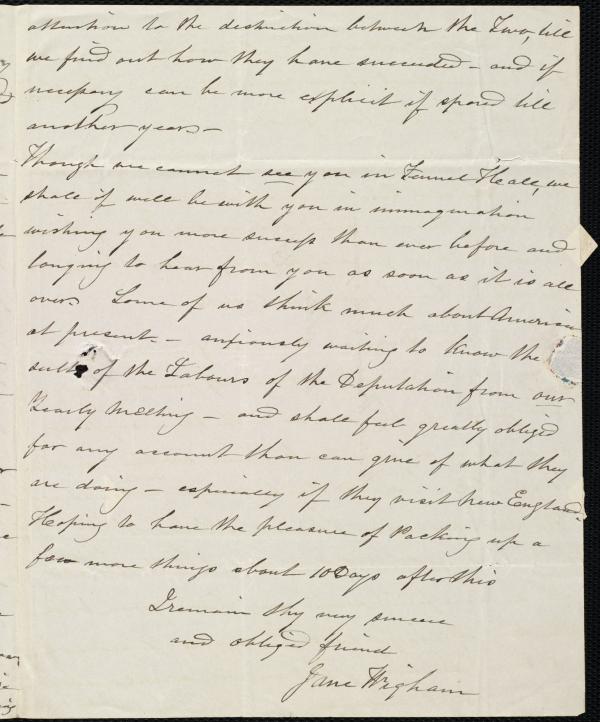 attention to the distinction between the Two, till
we find out how they have succeeded – and if
necessary can be more explicit if spared till
another year –
Though we cannot see you in Fanuel Hall, we
shall if well be with you in immagination
wishing you more success than ever before and
longing to hear from you as soon as it is all
over. Some of us think much about America
at present – anxiously waiting to know the
sults of the Labours of the Deputation from our
Yearly Meeting – and shall feel greatly obliged
for any account thou can give of what they
are doing – especially if they visit New England.
Hoping to have the pleasure of Packing up a
few more things about 10 Days after this
I remain thy very sincere
and obliged friend
Jane Wigham